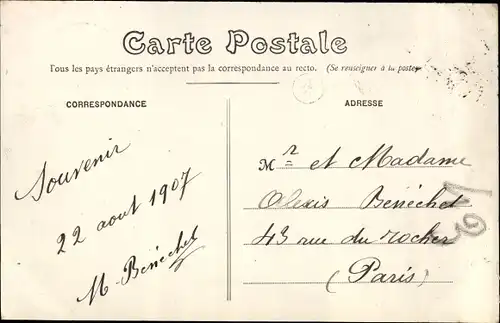 Carte Postale
Tous les pays étrangers n'acceptent pas la correspondance au recto. (Se renseigner à la poste)
CORRESPONDANCE
Souvenir
22 aout 1907
M. Benéchet
ADRESSE
Mr et Madame
Alexis Benéchet
43 rue du rocher
(Paris)